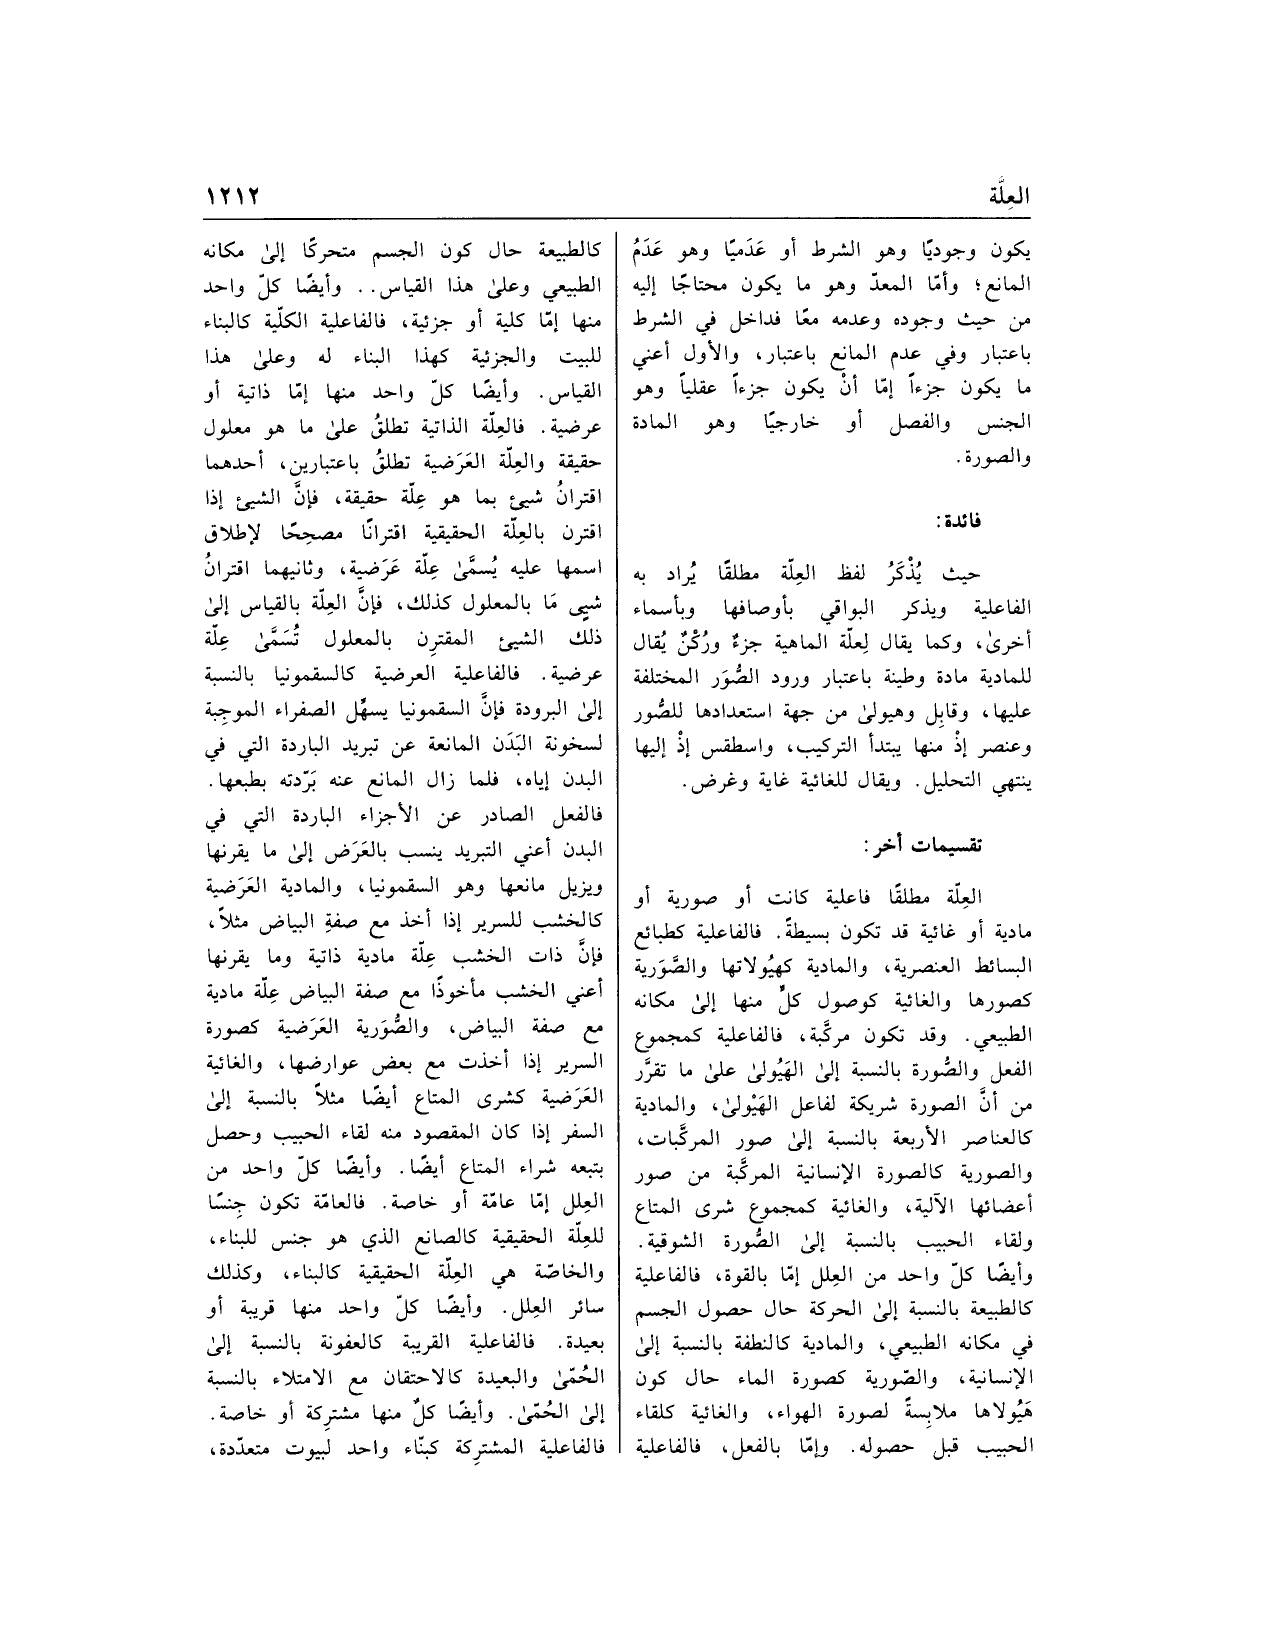 العِلَّة
١٢١٢
يكون وجوديًا وهو الشرط أو عَدَميًا وهو عَدَمُ
المانع؛ وأمّا المعدّ وهو ما يكون محتاجًا إليه
من حيث وجوده وعدمه معًا فداخل في الشرط
باعتبار وفي عدم المانع باعتبار، والأول أعني
ما يكون جزءاً إمّا أنْ يكون جزءاً عقلياً وهو
الجنس والفصل أو خارجيًا وهو المادة
والصورة.
فائدة:
حيث يُذْكَرُ لفظ العِلّة مطلقًا يُراد به
الفاعلية ويذكر البواقي بأوصافها وبأسماء
أخرىٰ، وكما يقال لِعلّة الماهية جزءٌ ورُكْنٌ يُقال
للمادية مادة وطينة باعتبار ورود الصُّوَر المختلفة
عليها، وقابِل وهيولىٰ من جهة استعدادها للصُّور
وعنصر إذْ منها يبتدأ التركيب، واسطقس إذْ إليها
ينتهي التحليل. ويقال للغائية غاية وغرض.
تقسيمات أخر:
العِلّة مطلقًا فاعلية كانت أو صورية أو
مادية أو غائية قد تكون بسيطةً. فالفاعلية كطبائع
البسائط العنصرية، والمادية كهيُولاتها والصَّوَرية
كصورها والغائية كوصول كلٍّ منها إلىٰ مكانه
الطبيعي. وقد تكون مركَّبة، فالفاعلية كمجموع
الفعل والصُّورة بالنسبة إلىٰ الهَيُولىٰ علىٰ ما تقرَّر
من أنَّ الصورة شريكة لفاعل الهَيْولىٰ، والمادية
كالعناصر الأربعة بالنسبة إلىٰ صور المركَّبات،
والصورية كالصورة الإنسانية المركَّبة من صور
أعضائها الآلية، والغائية كمجموع شرى المتاع
ولقاء الحبيب بالنسبة إلىٰ الصُّورة الشوقية.
وأيضًا كلّ واحد من العِلل إمّا بالقوة، فالفاعلية
كالطبيعة بالنسبة إلىٰ الحركة حال حصول الجسم
في مكانه الطبيعي، والمادية كالنطفة بالنسبة إلىٰ
الإنسانية، والصّورية كصورة الماء حال كون
هَيُولاها ملابِسةً لصورة الهواء، والغائية كلقاء
الحبيب قبل حصوله. وإمّا بالفعل، فالفاعلية
كالطبيعة حال كون الجسم متحركًا إلىٰ مكانه
الطبيعي وعلىٰ هذا القياس.. وأيضًا كلّ واحد
منها إمّا كلية أو جزئية، فالفاعلية الكلّية كالبناء
للبيت والجزئية كهذا البناء له وعلىٰ هذا
القياس. وأيضًا كلّ واحد منها إمّا ذاتية أو
عرضية. فالعِلّة الذاتية تطلقُ علىٰ ما هو معلول
حقيقة والعِلّة العَرَضية تطلقُ باعتبارين، أحدهما
اقترانُ شيئ بما هو عِلّة حقيقة، فإنَّ الشيئ إذا
اقترن بالعِلّة الحقيقية اقترانًا مصحِحًا لإطلاق
اسمها عليه يُسمَّىٰ عِلّة عَرَضية، وثانيهما اقترانُ
شيىٍ مَا بالمعلول كذلك، فإنَّ العِلّة بالقياس إلىٰ
ذلك الشيئ المقترِن بالمعلول تُسَمَّىٰ عِلّة
عرضية. فالفاعلية العرضية كالسقمونيا بالنسبة
إلىٰ البرودة فإنَّ السقمونيا يسهِّل الصفراء الموجِبة
لسخونة البَدَن المانعة عن تبريد الباردة التي في
البدن إياه، فلما زال المانع عنه بَرّدته بطبعها.
فالفعل الصادر عن الأجزاء الباردة التي في
البدن أعني التبريد ينسب بالعَرَض إلىٰ ما يقرنها
ويزيل مانعها وهو السقمونيا، والمادية العَرَضية
كالخشب للسرير إذا أخذ مع صفةِ البياض مثلاً،
فإنَّ ذات الخشب عِلّة مادية ذاتية وما يقرنها
أعني الخشب مأخوذًا مع صفة البياض عِلّة مادية
مع صفة البياض، والصُّوَرية العَرَضية كصورة
السرير إذا أخذت مع بعض عوارضها، والغائية
العَرَضية كشرى المتاع أيضًا مثلاً بالنسبة إلىٰ
السفر إذا كان المقصود منه لقاء الحبيب وحصل
بتبعه شراء المتاع أيضًا. وأيضًا كلّ واحد من
العِلل إمّا عامّة أو خاصة. فالعامّة تكون جِنسًا
للعِلّة الحقيقية كالصانع الذي هو جنس للبناء،
والخاصّة هي العِلّة الحقيقية كالبناء، وكذلك
سائر العِلل. وأيضًا كلّ واحد منها قريبة أو
بعيدة. فالفاعلية القريبة كالعفونة بالنسبة إلىٰ
الحُمّىٰ والبعيدة كالاحتقان مع الامتلاء بالنسبة
إلىٰ الحُمّىٰ. وأيضًا كلٌ منها مشترِكة أو خاصة.
فالفاعلية المشتركة كبنّاء واحد لبيوت متعدّدة،